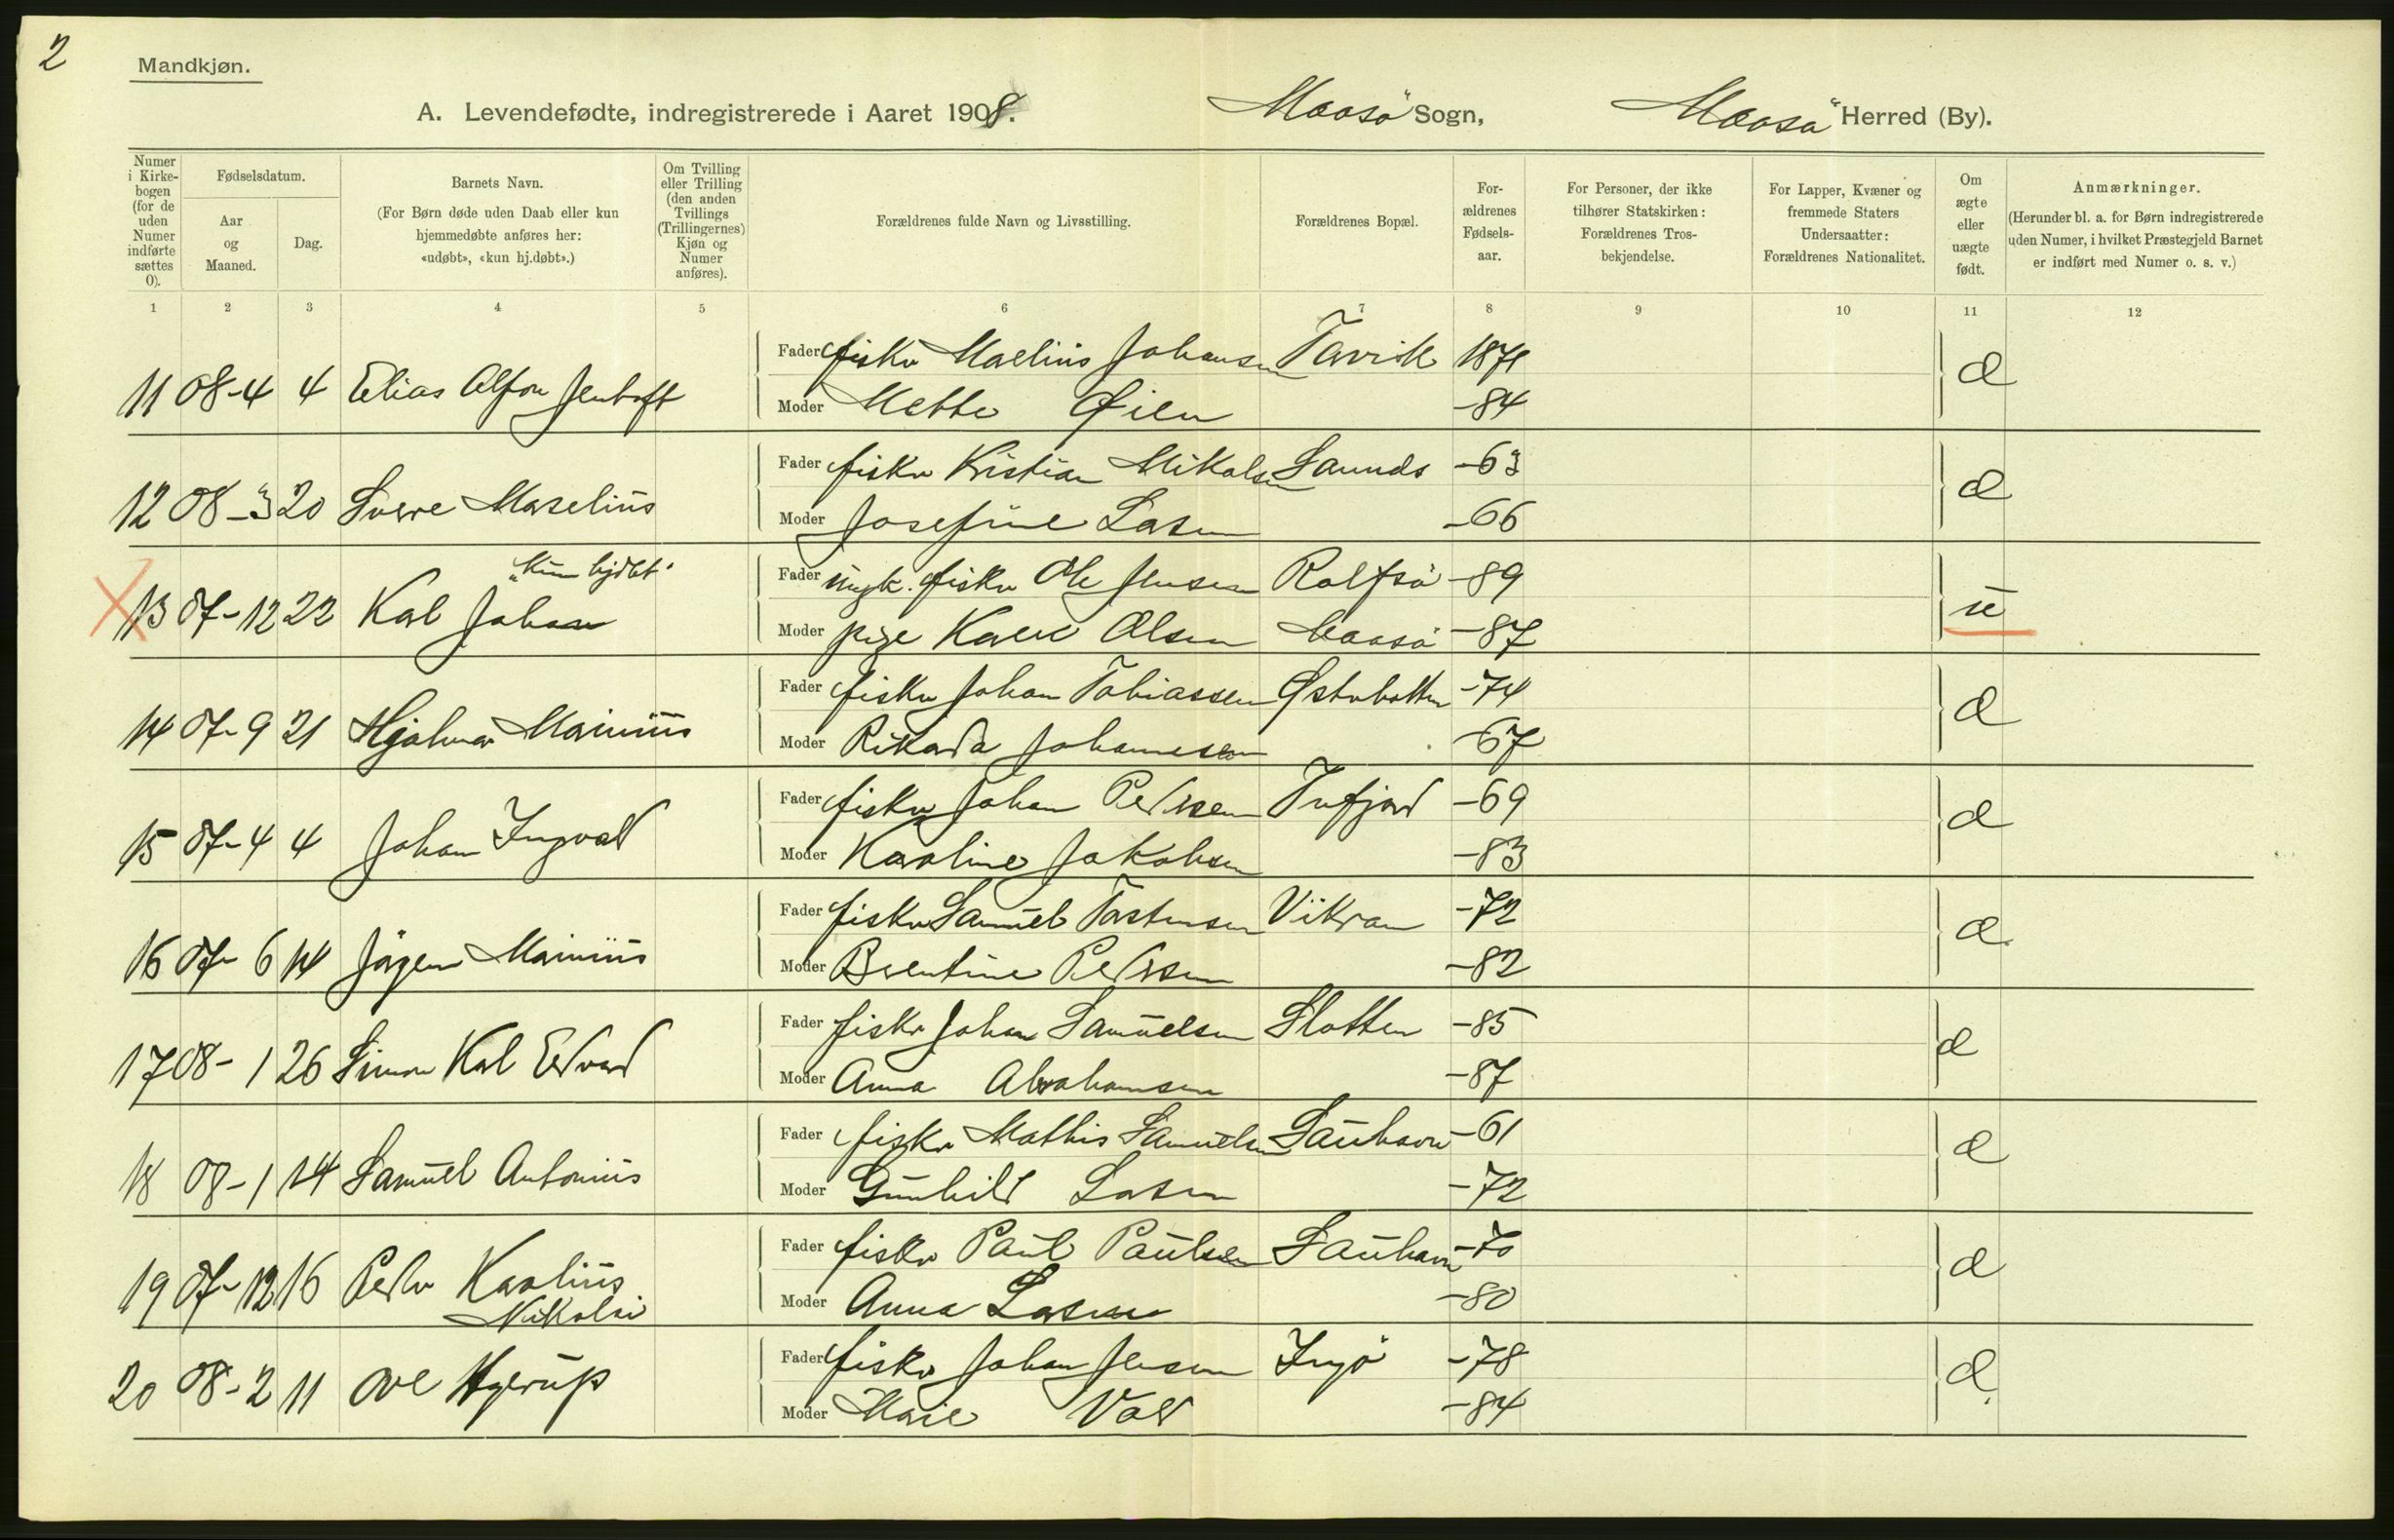 2
Mandkjøn.
A. Levendefødte, indregistrerede i Aaret 1908. Maasö Sogn, Maasö Herred (By).
Numer i Kirkebogen (for de uden Numer indførte sættes 0).
Fødselsdatum.
Aar og Maaned.
Dag.
Barnets Navn.
(For Børn døde uden Daab eller kun hjemmedøbte anføres her: «udøbt», «kun hj.døbt».)
Om Tvilling eller Trilling (den anden Tvillings (Trillingernes) Kjøn og Numer anføres).
Forældrenes fulde Navn og Livsstilling.
Forældrenes Bopæl.
Forældrenes Fødselsaar.
For Personer, der ikke tilhører Statskirken: Forældrenes Trosbekjendelse.
For Lapper, Kvæner og fremmede Staters Undersaatter: Forældrenes Nationalitet.
Om ægte eller uægte født.
Anmærkninger.
(Herunder bl. a. for Børn indregistrerede uden Numer, i hvilket Præstegjeld Barnet er indført med Numer o. s. v.)
1 2 3 4 5 6 7 8 9 10 11 12
Fader fisker Johansen 1871
11 08-4 4 Elias Jentoft æ
Moder Mette Øien -84
Fader fisker Kristian Mikalsen -63
12 08-3 20 Sverre Marselius æ
Moder Josefine Larsen -66
Fader ungk. fisker Ole Jensen Rolfsö -89
"Kun hjdbt"
13 07-12 22 Karl Johan u
Moder pige Karen Olsen Maasö -87
Fader fisker Johan Tobiassen Østerbotten -74
14 07-9 21 Hjalmar Marinius æ
Moder Rikarda Johannesen -67
Fader fisker Johan Pedersen Tufjord -69
15 07-4 4 Johan Ingvald æ
Moder Karoline Jakobsen -83
Fader fisker Samuel Torstensen Vikran -72
16 07-6 14 Jörgen Marinius æ
Moder Berentine Pedersen -82
Fader fisker Johan Samuelsen Slotten -85
17 08-1 26 Simon Karl Edvard æ
Moder Anna Abrahamsen -87
Fader fisker Mathis Samuelsen Sauhavn -61
18 08-1 14 Samuel Antonius æ
Moder Gunhild Larsen -72
Fader fisker Paul Paulsen Sauhavn -70
19 07-12 16 Peder Karolius æ
Nikolai
Moder Anna Larsen -80
Fader fisker Johan Jensen Ingö -78
20 08-2 11 Ove Hjerup æ
Moder Marie -84